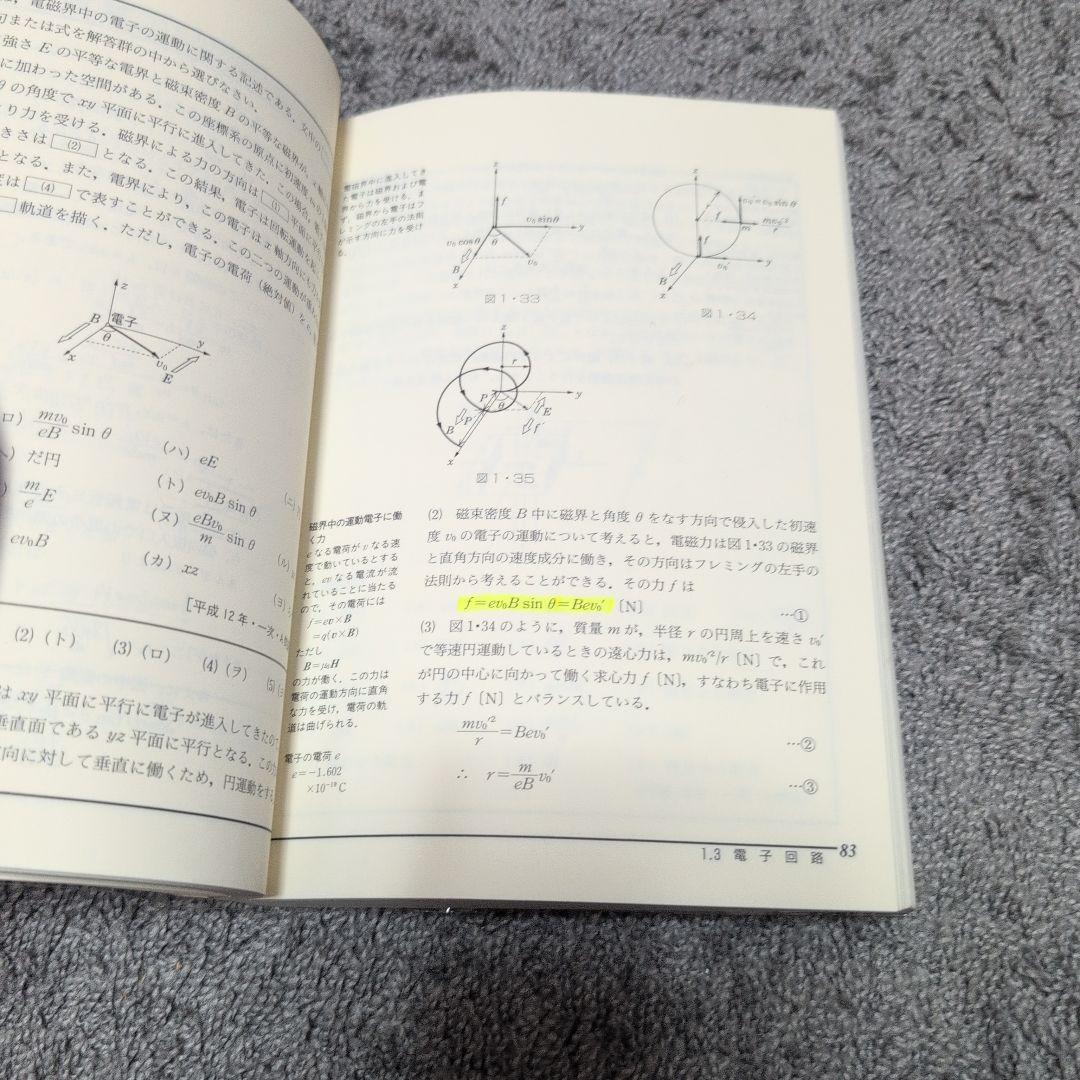 電磁界中の電子の運動に関する記述である．文中の
句または式を解答群の中から選びなさい．
強さ E の平等な電界と磁束密度 B の平等な磁界が，
に加わった空間がある．この座標系の原点に初速度
θ の角度で xy 平面に平行に進入してきた．この場合，
より力を受ける．磁界による力の方向は (1) 平面に
きさは (2) となる．この結果，電子は回転運動を
となる．また，電界により，この電子は x 軸方向にも
度は (4) で表すことができる．この二つの運動が
軌道を描く．ただし，電子の電荷（絶対値）を
z
B 電子
θ
y
x
v₀
E
ロ) mv₀/eB sin θ
(ハ) eE
だ円
(ト) ev₀B sin θ
m/e E
(ヌ) eBv₀/m sin θ
ev₀B
(カ) xz
(ヨ)
[平成 12 年・一次・
(2) (ト) (3) (ロ) (4) (ヲ) (5)
は xy 平面に平行に電子が進入してきたので
垂直面である yz 平面に平行となる．この力
方向に対して垂直に働くため，円運動をする
電磁界中に進入してき
た電子は磁界および電
界から力を受ける．ま
ず，磁界から電子はフ
レミングの左手の法則
が示す方向に力を受け
る．
z
f
v₀ sin θ
y
v₀ cos θ
θ
B
v₀
x
図1・33
z
r
v₀' = v₀ sin θ
m
mv₀'²/r
f
v₀'
y
B
x
図1・34
z
r
P
y
θ
P'
E
B
f'
x
図1・35
磁界中の運動電子に働
く力
e なる電荷が v なる速
度で動いているとする
と，ev なる電流が流
れていることに当たる
ので，その電荷には
f=ev×B
=q(v×B)
ただし
B=μ₀H
の力が働く．この力は
電荷の運動方向に直角
な力を受け，電荷の軌
道は曲げられる．
電子の電荷 e
e=−1.602
×10⁻¹⁹ C
(2) 磁束密度 B 中に磁界と角度 θ をなす方向で侵入した初速
度 v₀ の電子の運動について考えると，電磁力は図1・33 の磁界
と直角方向の速度成分に働き，その方向はフレミングの左手の
法則から考えることができる．その力 f は
f=ev₀B sin θ=Bev₀' 〔N〕 …①
(3) 図 1・34 のように，質量 m が，半径 r の円周上を速さ v₀'
で等速円運動しているときの遠心力は，mv₀'²/r〔N〕で，これ
が円の中心に向かって働く求心力 f〔N〕，すなわち電子に作用
する力 f〔N〕とバランスしている．
mv₀'²/r=Bev₀' …②
∴ r=m/eB v₀' …③
1.3 電子回路 83